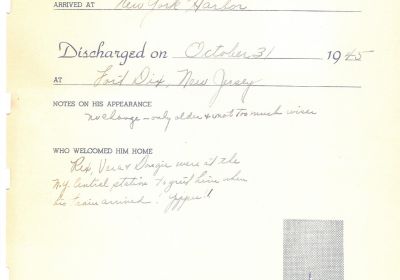 ARRIVED AT New York Harbor
Discharged on October 31 1945
AT Fort Dix, New Jersey
NOTES ON HIS APPEARANCE
no change - only older & not too much wiser
WHO WELCOMED HIM HOME
Rex, Vera & Doogie were at the
N.Y. Central station to greet him when
his train arrived! Yippee!!